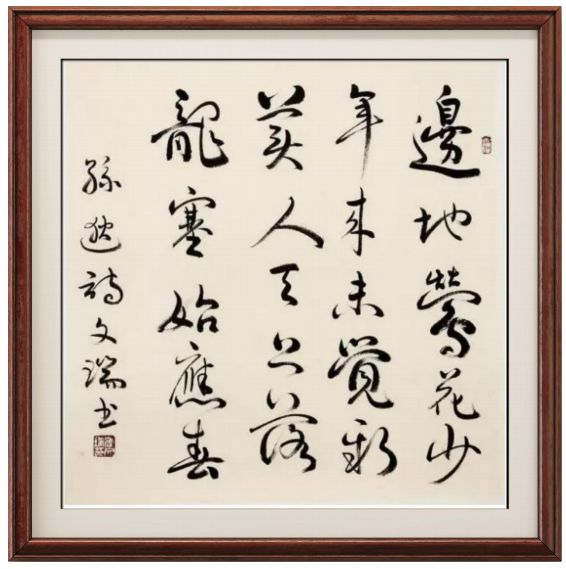 邊地鶯花少
年來未覺新
美人天上落
龍塞始應春
孫逖詩文瑞书